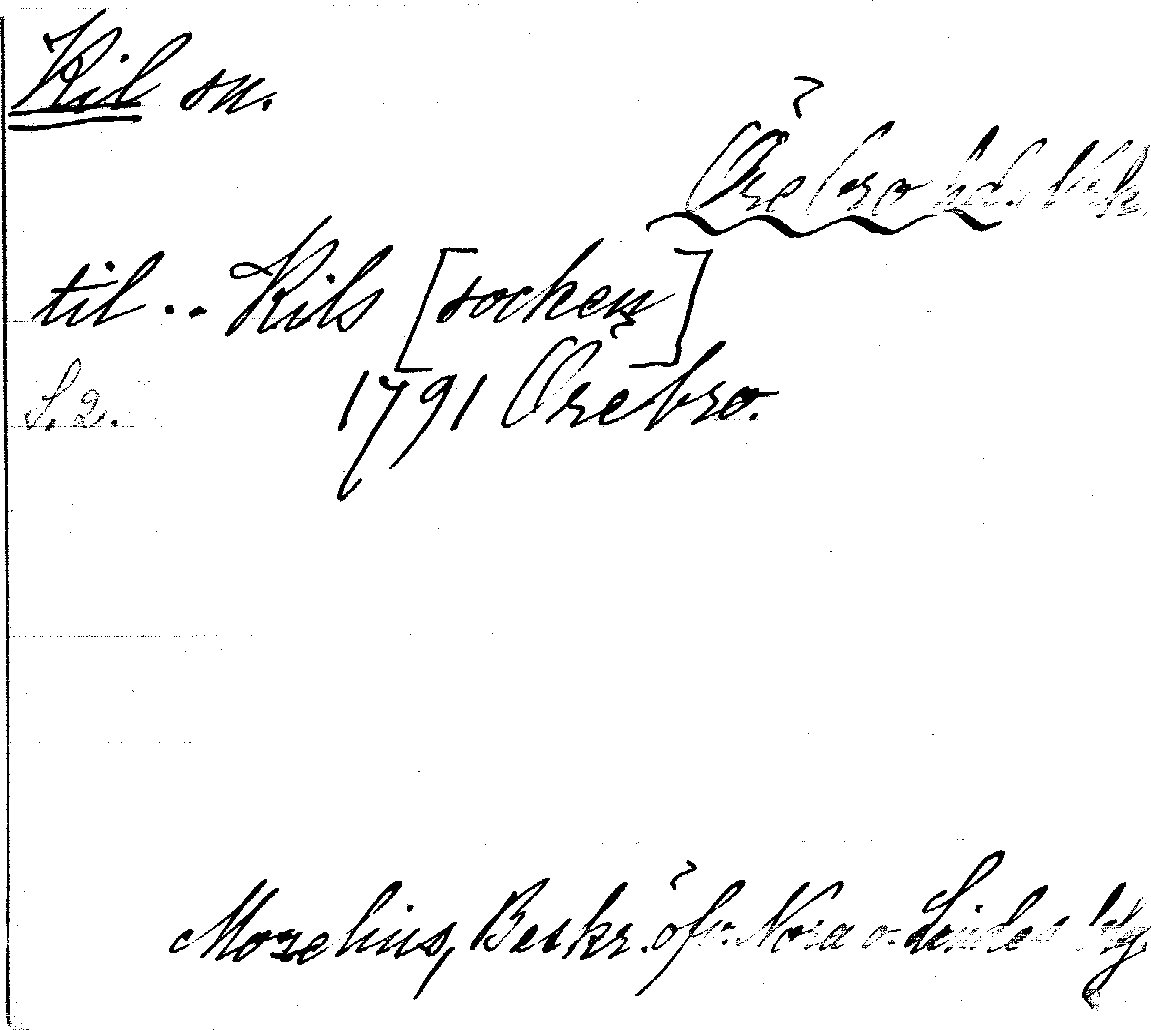 Kil sn.
Örebro hd. Nrk.
til .. Kils [socken]
S. 2. 1791 Örebro.
Morelius, Beskr. öfv. Nora o. Lindes bg.